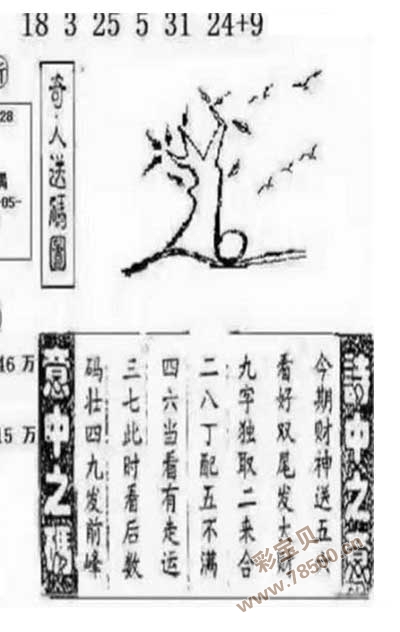 18 3 25 5 31 24+9
28
05-
46 万
15 万
奇人送码图
今期财神送五
看好双尾发大财
九字独取二来合
二八丁配五不满
四六当看有走运
三七此时看后数
码壮四九发前峰
意中之
中之
彩宝贝
www.78500.cn